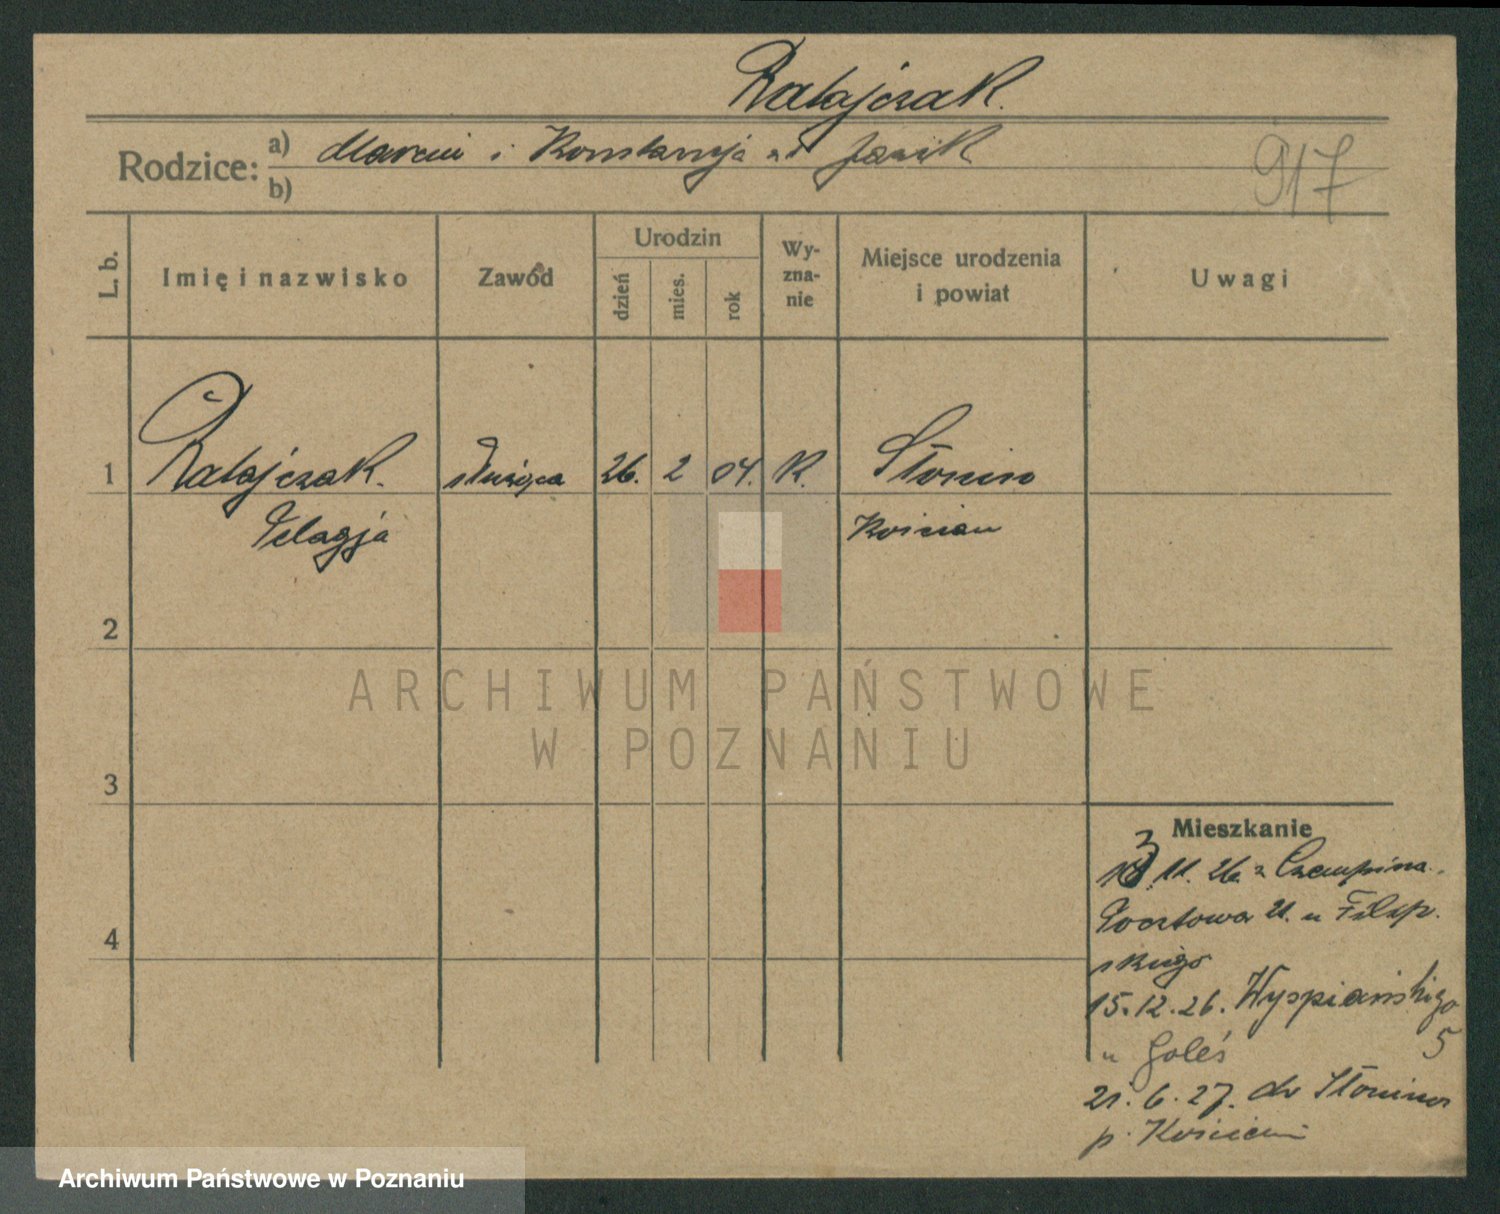 Ratajczak.
Rodzice: a) Marcin i Konstancja zd Janik
b)
917
L. b.
Imię i nazwisko
Zawód
Urodzin
dzień
mies.
rok
Wy-
zna-
nie
Miejsce urodzenia
i powiat
Uwagi
1 Ratajczak. służąca 26. 2 04. K. Słonin
Pelagja Kościan
2
3
4
Mieszkanie
11. 26 z Czempina.
Pocztowa 21. u Filip
skiego
15.12.26. Wyspiańskiego
5
u Goleś
21. 6. 27. do Słonina
p. Kościan
ARCHIWUM PAŃSTWOWE
W POZNANIU
Archiwum Państwowe w Poznaniu